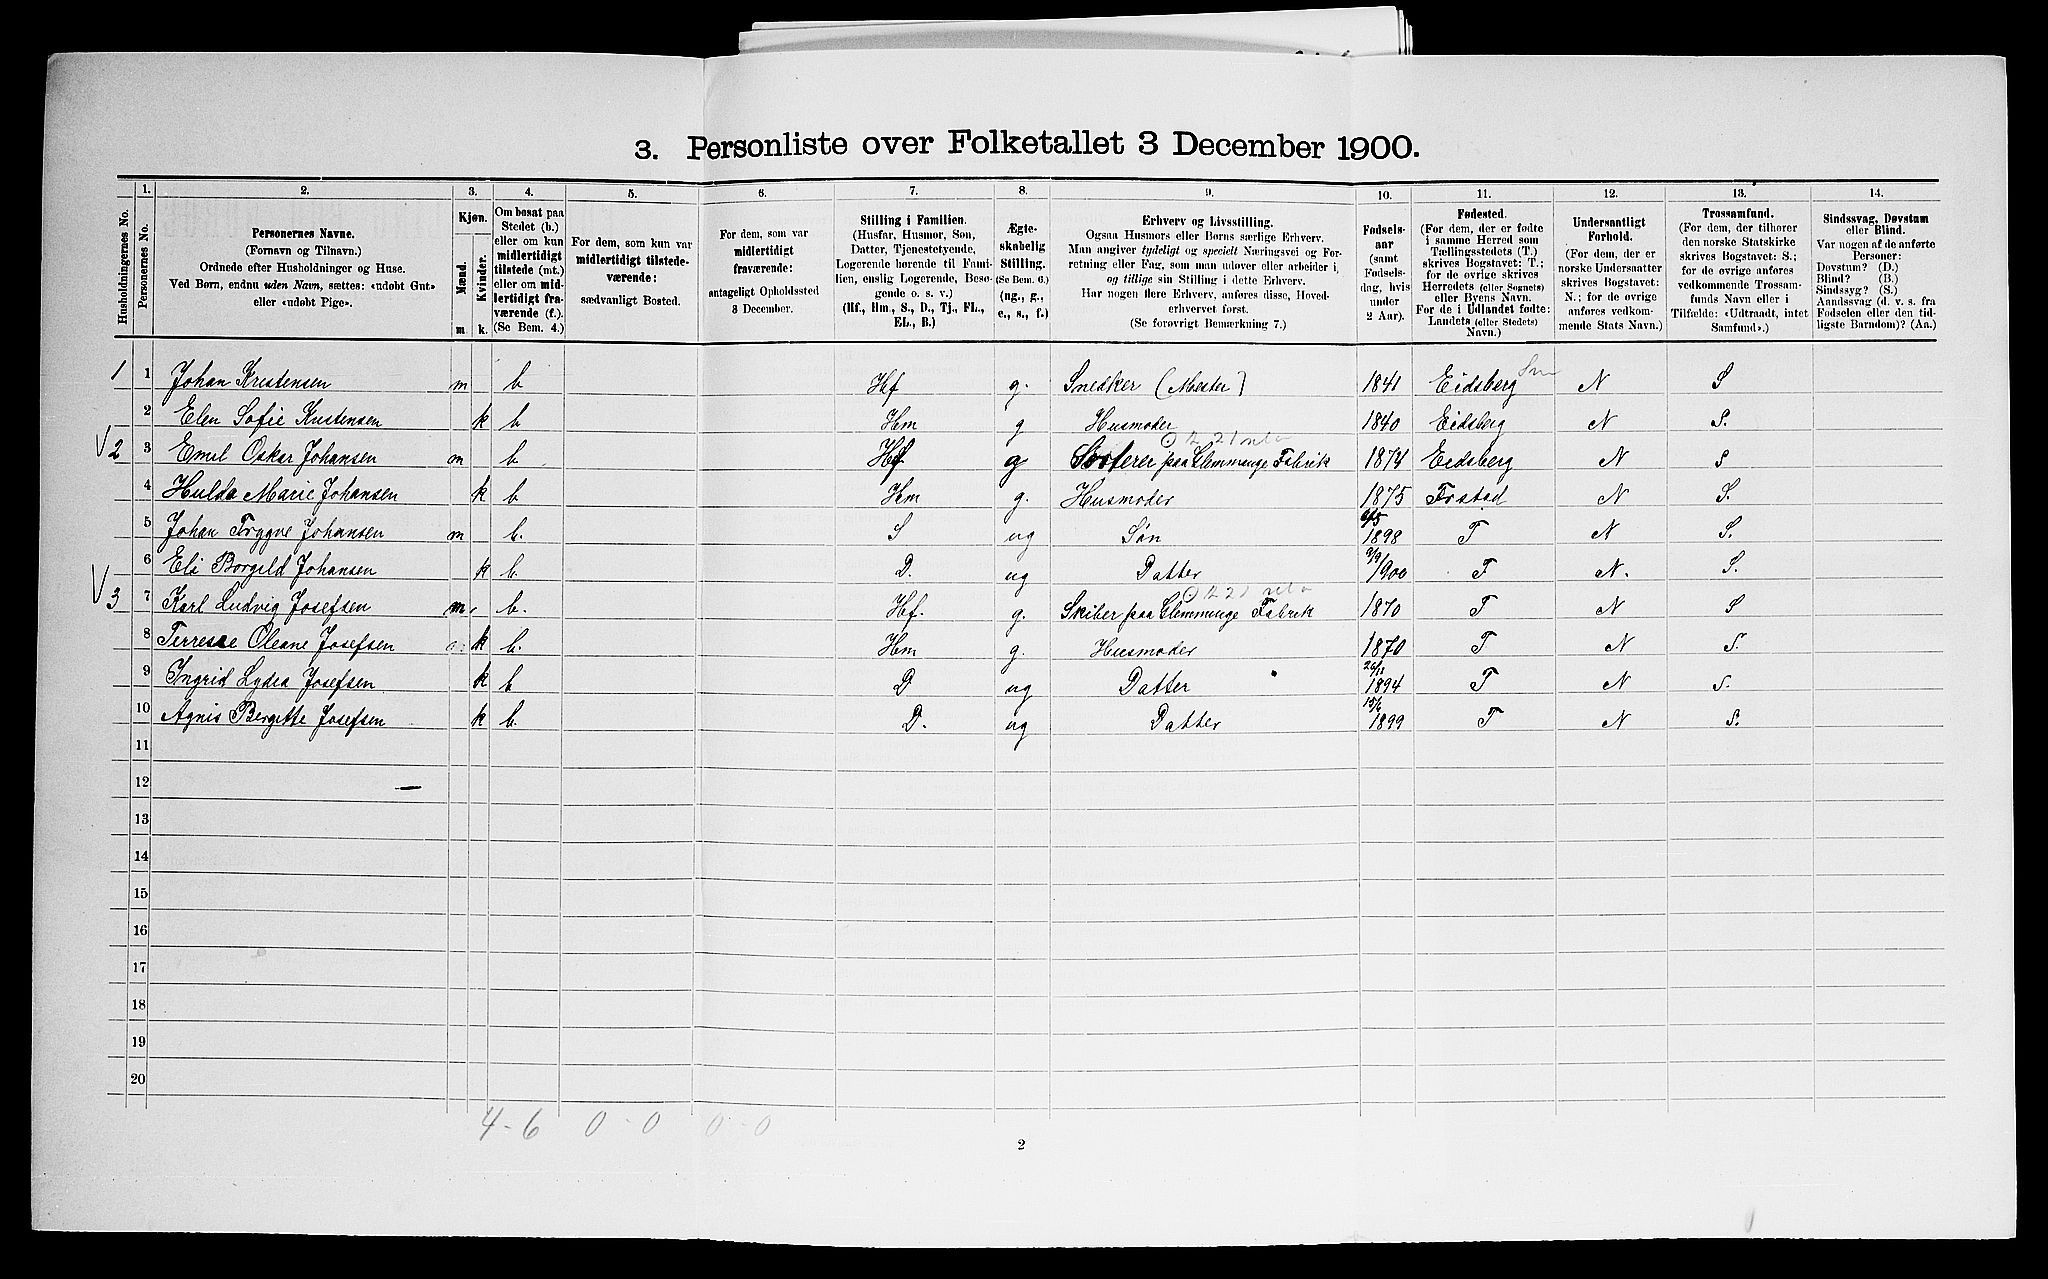 3. Personliste over Folketallet 3 December 1900.
1. 2. 3. 4. 5. 6. 7. 8. 9. 10. 11. 12. 13. 14.
Husholdningernes No.
Personernes No.
Personernes Navne.
(Fornavn og Tilnavn.)
Ordnede efter Husholdninger og Huse.
Ved Børn, endnu uden Navn, sættes: «udøbt Gut»
eller «udøbt Pige».
Kjøn.
Mænd.
Kvinder.
m k.
Om bosat paa
Stedet (b.)
eller om kun
midlertidigt
tilstede (mt.)
eller om mid-
lertidigt fra-
værende (f.)
(Se Bem. 4.)
For dem, som kun var
midlertidigt tilstede-
værende:
sædvanligt Bosted.
For dem, som var
midlertidigt
fraværende:
antageligt Opholdssted
3 December.
Stilling i Familien.
(Husfar, Husmor, Søn,
Datter, Tjenestetyende,
Logerende hørende til Fami-
lien, enslig Logerende, Besø-
gende o. s. v.)
(Hf., Hm., S., D., Tj., FL.,
EL., B.)
Ægte-
skabelig
Stilling.
(Se Bem. 6.)
(ug., g.,
e., s., f.)
Erhverv og Livsstilling.
Ogsaa Husmors eller Børns særlige Erhverv.
Man angiver tydeligt og specielt Næringsvei og For-
retning eller Fag, som man udøver eller arbeider i,
og tillige sin Stilling i dette Erhverv.
Har nogen flere Erhverv, anføres disse, Hoved-
erhvervet først.
(Se forøvrigt Bemerkning 7.)
Fødsels-
aar
(samt
Fødsels-
dag, hvis
under
2 Aar).
Fødested.
(For dem, der er fødte
i samme Herred som
Tællingsstedets (T.)
skrives Bogstavet: T.;
for de øvrige skrives
Herredets (eller Sognets)
eller Byens Navn.
For de i Udlandet fødte:
Landets (eller Stedets)
Navn.)
Undersaatligt
Forhold.
(For dem, der er
norske Undersaatter
skrives Bogstavet:
N.; for de øvrige
anføres vedkom-
mende Stats Navn.)
Trossamfund.
(For dem, der tilhører
den norske Statskirke
skrives Bogstavet: S.;
for de øvrige anføres
vedkommende Trossam-
funds Navn eller i
Tilfælde: «Udtraadt, intet
Samfund».)
Sindssvag, Døvstum
eller Blind.
Var nogen af de anførte
Personer:
Døvstum? (D.)
Blind? (B.)
Sindssyg? (S.)
Aandssvag (d. v. s. fra
Fødselen eller den tid-
ligste Barndom)? (Aa.)
1 1 Johan Kristensen m b Hf g. Snedker (Mester) 1841 Eidsberg N S
2 Elen Sofie Kristensen k b Hm g Husmoder 1840 Eidsberg N S.
V2 3 Emil Oskar Johansen m b. Hf g Sorterer paa Glemminge Fabrik 1874 Eidsberg N S
4 Hulda Marie Johansen k b Hm g. Husmoder 1875 Frstad N S.
5 Johan Trygve Johansen m b. S ug Søn 1898 T N S.
6 Eli Borgild Johansen k b. D. ug Datter 9/9 1900 T N. S.
V3 7 Karl Ludvig Josefsen m. b. Hf. g. Skiber paa Glemminge Fabrik 1870 T N S
8 Terrese Oleane Josefsen k b. Hm g. Husmoder 1870 T N S.
9 Ingrid Lydea Josefsen k b D ug Datter 1894 T N S.
10 Agnis Bergitte Josefsen k b. D. ug Datter 15/6 1899 T N S.
11
12
13
14
15
16
17
18
19
20
4-6 0-0 0-0
2